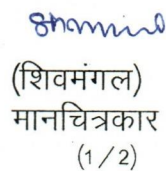 (शिवमंगल)
मानचित्रकार
(1/2)